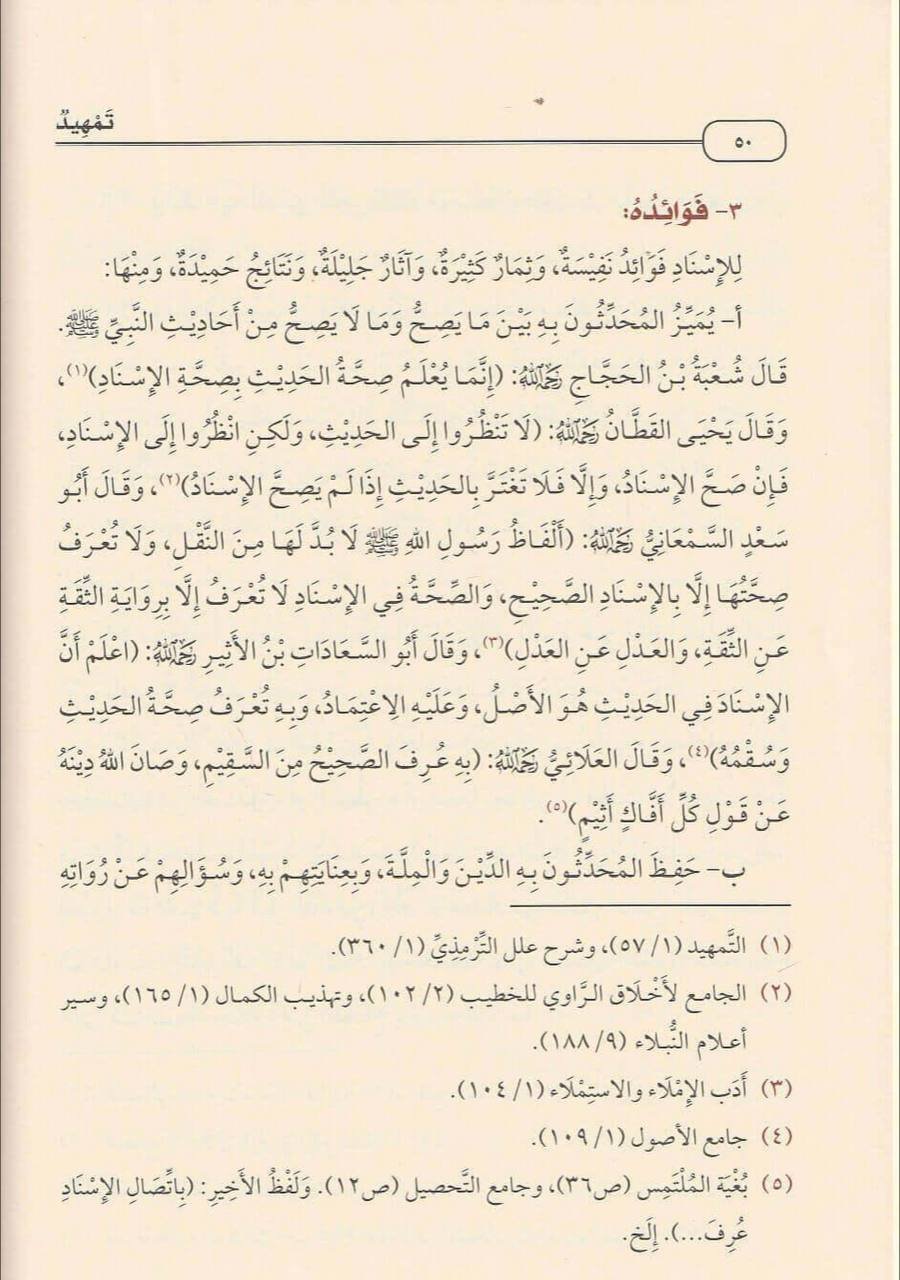 تَمْهِيدٌ
٥٠
٣- فَوَائِدُهُ:
لِلإِسْنَادِ فَوَائِدُ نَفِيسَةٌ، وَثِمَارٌ كَثِيرَةٌ، وَآثَارٌ جَلِيلَةٌ، وَنَتَائِجُ حَمِيدَةٌ، وَمِنْهَا:
أ- يُمَيِّزُ المُحَدِّثُونَ بِهِ بَيْنَ مَا يَصِحُّ وَمَا لَا يَصِحُّ مِنْ أَحَادِيْثِ النَّبِيِّ ﷺ.
قَالَ شُعْبَةُ بْنُ الحَجَّاجِ رَحِمَهُ اللهُ: (إِنَّمَا يُعْلَمُ صِحَّةُ الحَدِيْثِ بِصِحَّةِ الإِسْنَادِ)(١)،
وَقَالَ يَحْيَى القَطَّانُ رَحِمَهُ اللهُ: (لَا تَنْظُرُوا إِلَى الحَدِيْثِ، وَلَكِنِ انْظُرُوا إِلَى الإِسْنَادِ،
فَإِنْ صَحَّ الإِسْنَادُ، وَإِلَّا فَلَا تَغْتَرَّ بِالحَدِيْثِ إِذَا لَمْ يَصِحَّ الإِسْنَادُ)(٢)، وَقَالَ أَبُو
سَعْدٍ السَّمْعَانِيُّ رَحِمَهُ اللهُ: (أَلْفَاظُ رَسُولِ اللهِ ﷺ لَا بُدَّ لَهَا مِنَ النَّقْلِ، وَلَا تُعْرَفُ
صِحَّتُهَا إِلَّا بِالإِسْنَادِ الصَّحِيْحِ، وَالصِّحَّةُ فِي الإِسْنَادِ لَا تُعْرَفُ إِلَّا بِرِوَايَةِ الثِّقَةِ
عَنِ الثِّقَةِ، وَالعَدْلِ عَنِ العَدْلِ)(٣)، وَقَالَ أَبُو السَّعَادَاتِ بْنُ الأَثِيرِ رَحِمَهُ اللهُ: (اعْلَمْ أَنَّ
الإِسْنَادَ فِي الحَدِيْثِ هُوَ الأَصْلُ، وَعَلَيْهِ الِاعْتِمَادُ، وَبِهِ تُعْرَفُ صِحَّةُ الحَدِيْثِ
وَسُقْمُهُ)(٤)، وَقَالَ العَلَائِيُّ رَحِمَهُ اللهُ: (بِهِ عُرِفَ الصَّحِيْحُ مِنَ السَّقِيْمِ، وَصَانَ اللهُ دِيْنَهُ
عَنْ قَوْلِ كُلِّ أَفَّاكٍ أَثِيْمٍ)(٥).
ب- حَفِظَ المُحَدِّثُونَ بِهِ الدِّيْنَ وَالْمِلَّةَ، وَبِعِنَايَتِهِمْ بِهِ، وَسُؤَالِهِمْ عَنْ رُوَاتِهِ
(١) التَّمهيد (١/ ٥٧)، وشرح علل التِّرْمِذِيِّ (١/ ٣٦٠).
(٢) الجامع لأَخْلَاق الرَّاوي للخطيب (٢/ ١٠٢)، وتهذيب الكمال (١/ ١٦٥)، وسير
أعلام النُّبلاء (٩/ ١٨٨).
(٣) أَدَب الإِمْلَاء والاستِمْلَاء (١/ ١٠٤).
(٤) جامع الأصول (١/ ١٠٩).
(٥) بُغْيَة المُلْتَمِس (ص٣٦)، وجامع التَّحصيل (ص١٢). وَلَفْظُ الأَخِيرِ: (بِاتِّصَالِ الإِسْنَادِ
عُرِفَ...). إِلَخ.